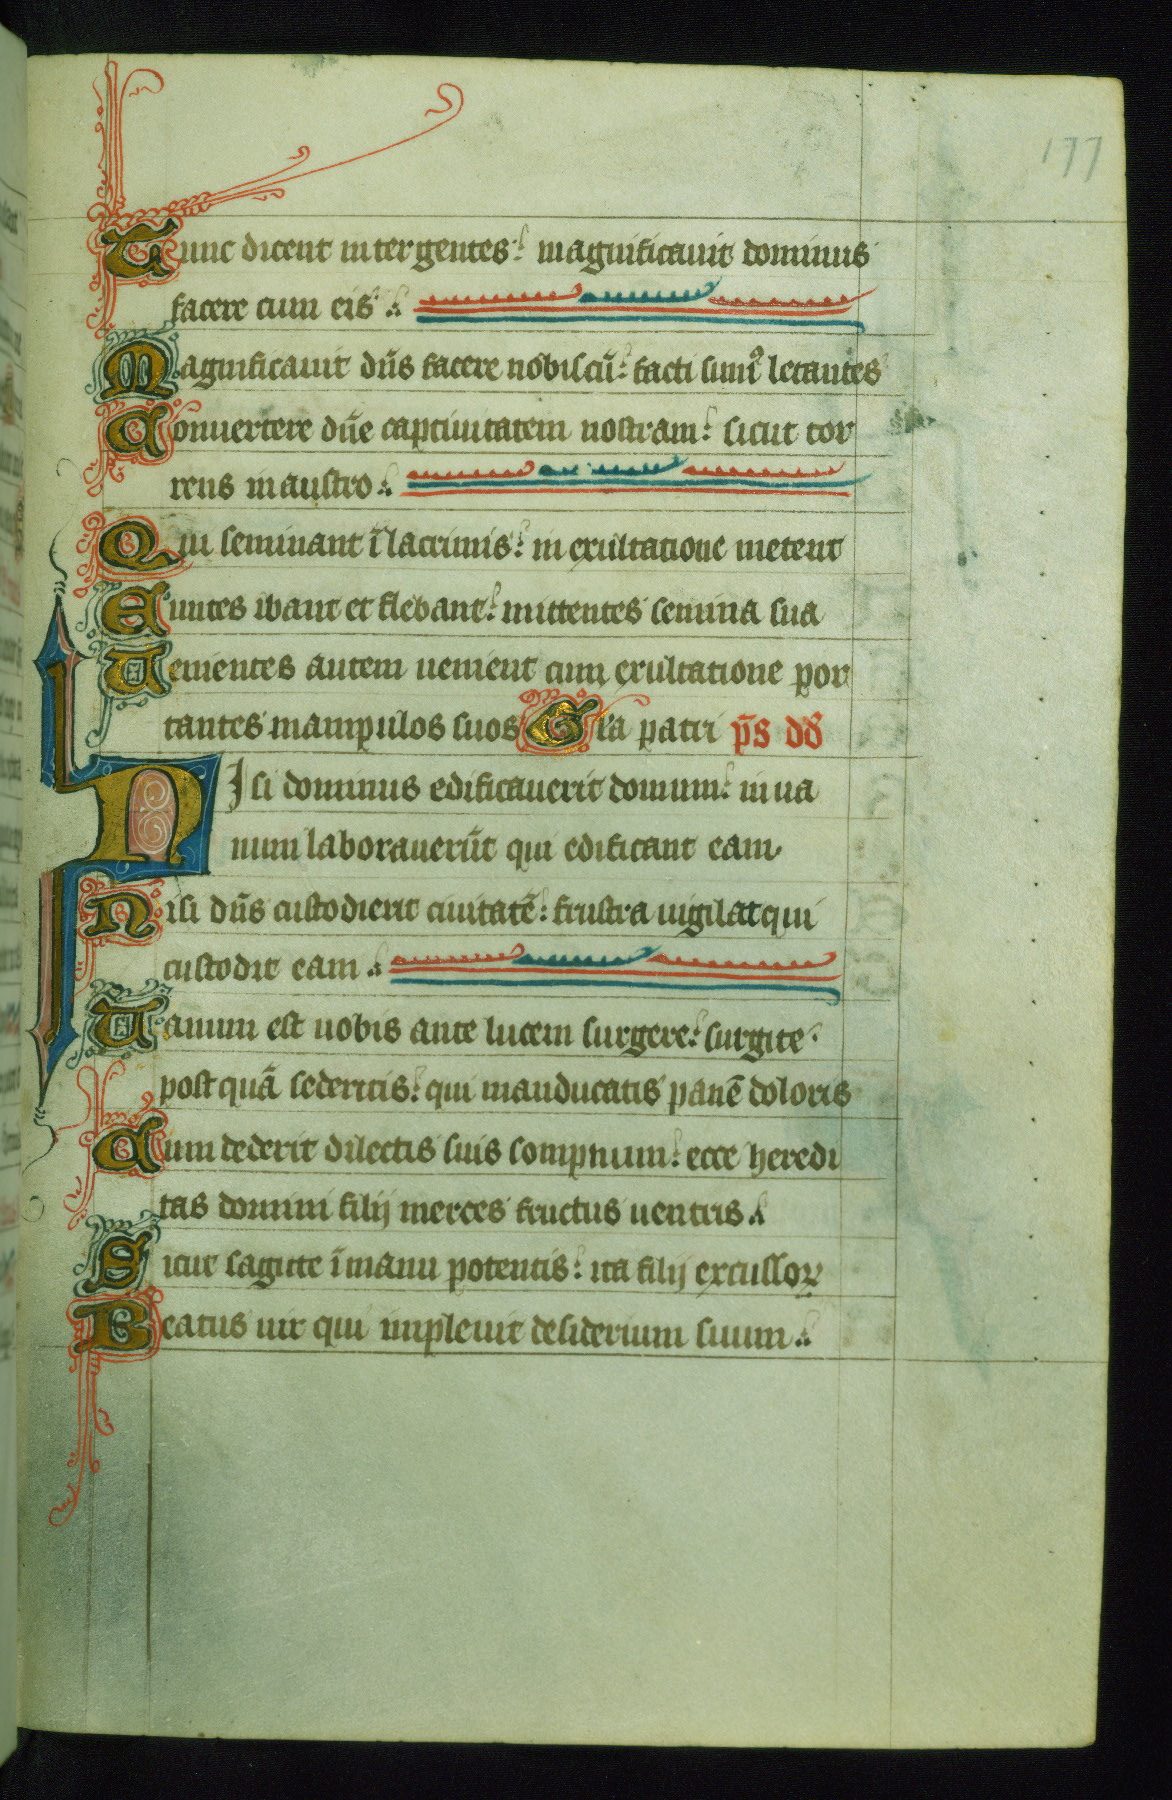 177
Tunc dicent inter gentes: magnificauit dominus
facere cum eis.
Magnificauit dn̄s facere nobiscū: facti sumꝰ letantes
Conuertere dn̄e captiuitatem nostram: sicut tor
rens in austro.
Qui seminant ī lacrimis: in exultatione metent
Euntes ibant et flebant: mittentes semina sua
Uenientes autem uenient cum exultatione por
tantes manipulos suos Gl̄a patri p̄s dd̄
Nisi dominus edificauerit domum: in ua
num laborauerūt qui edificant eam.
Nisi dn̄s custodierit ciuitatē: frustra uigilat qui
custodit eam.
Uanum est uobis ante lucem surgere: surgite
post quā sederitis: qui manducatis panē doloris
Cum dederit dilectis suis sompnum: ecce heredi
tas domini filij merces fructus uentris.
Sicut sagitte ī manu potentis: ita filij excussoꝝ
Beatus uir qui impleuit desiderium suum.